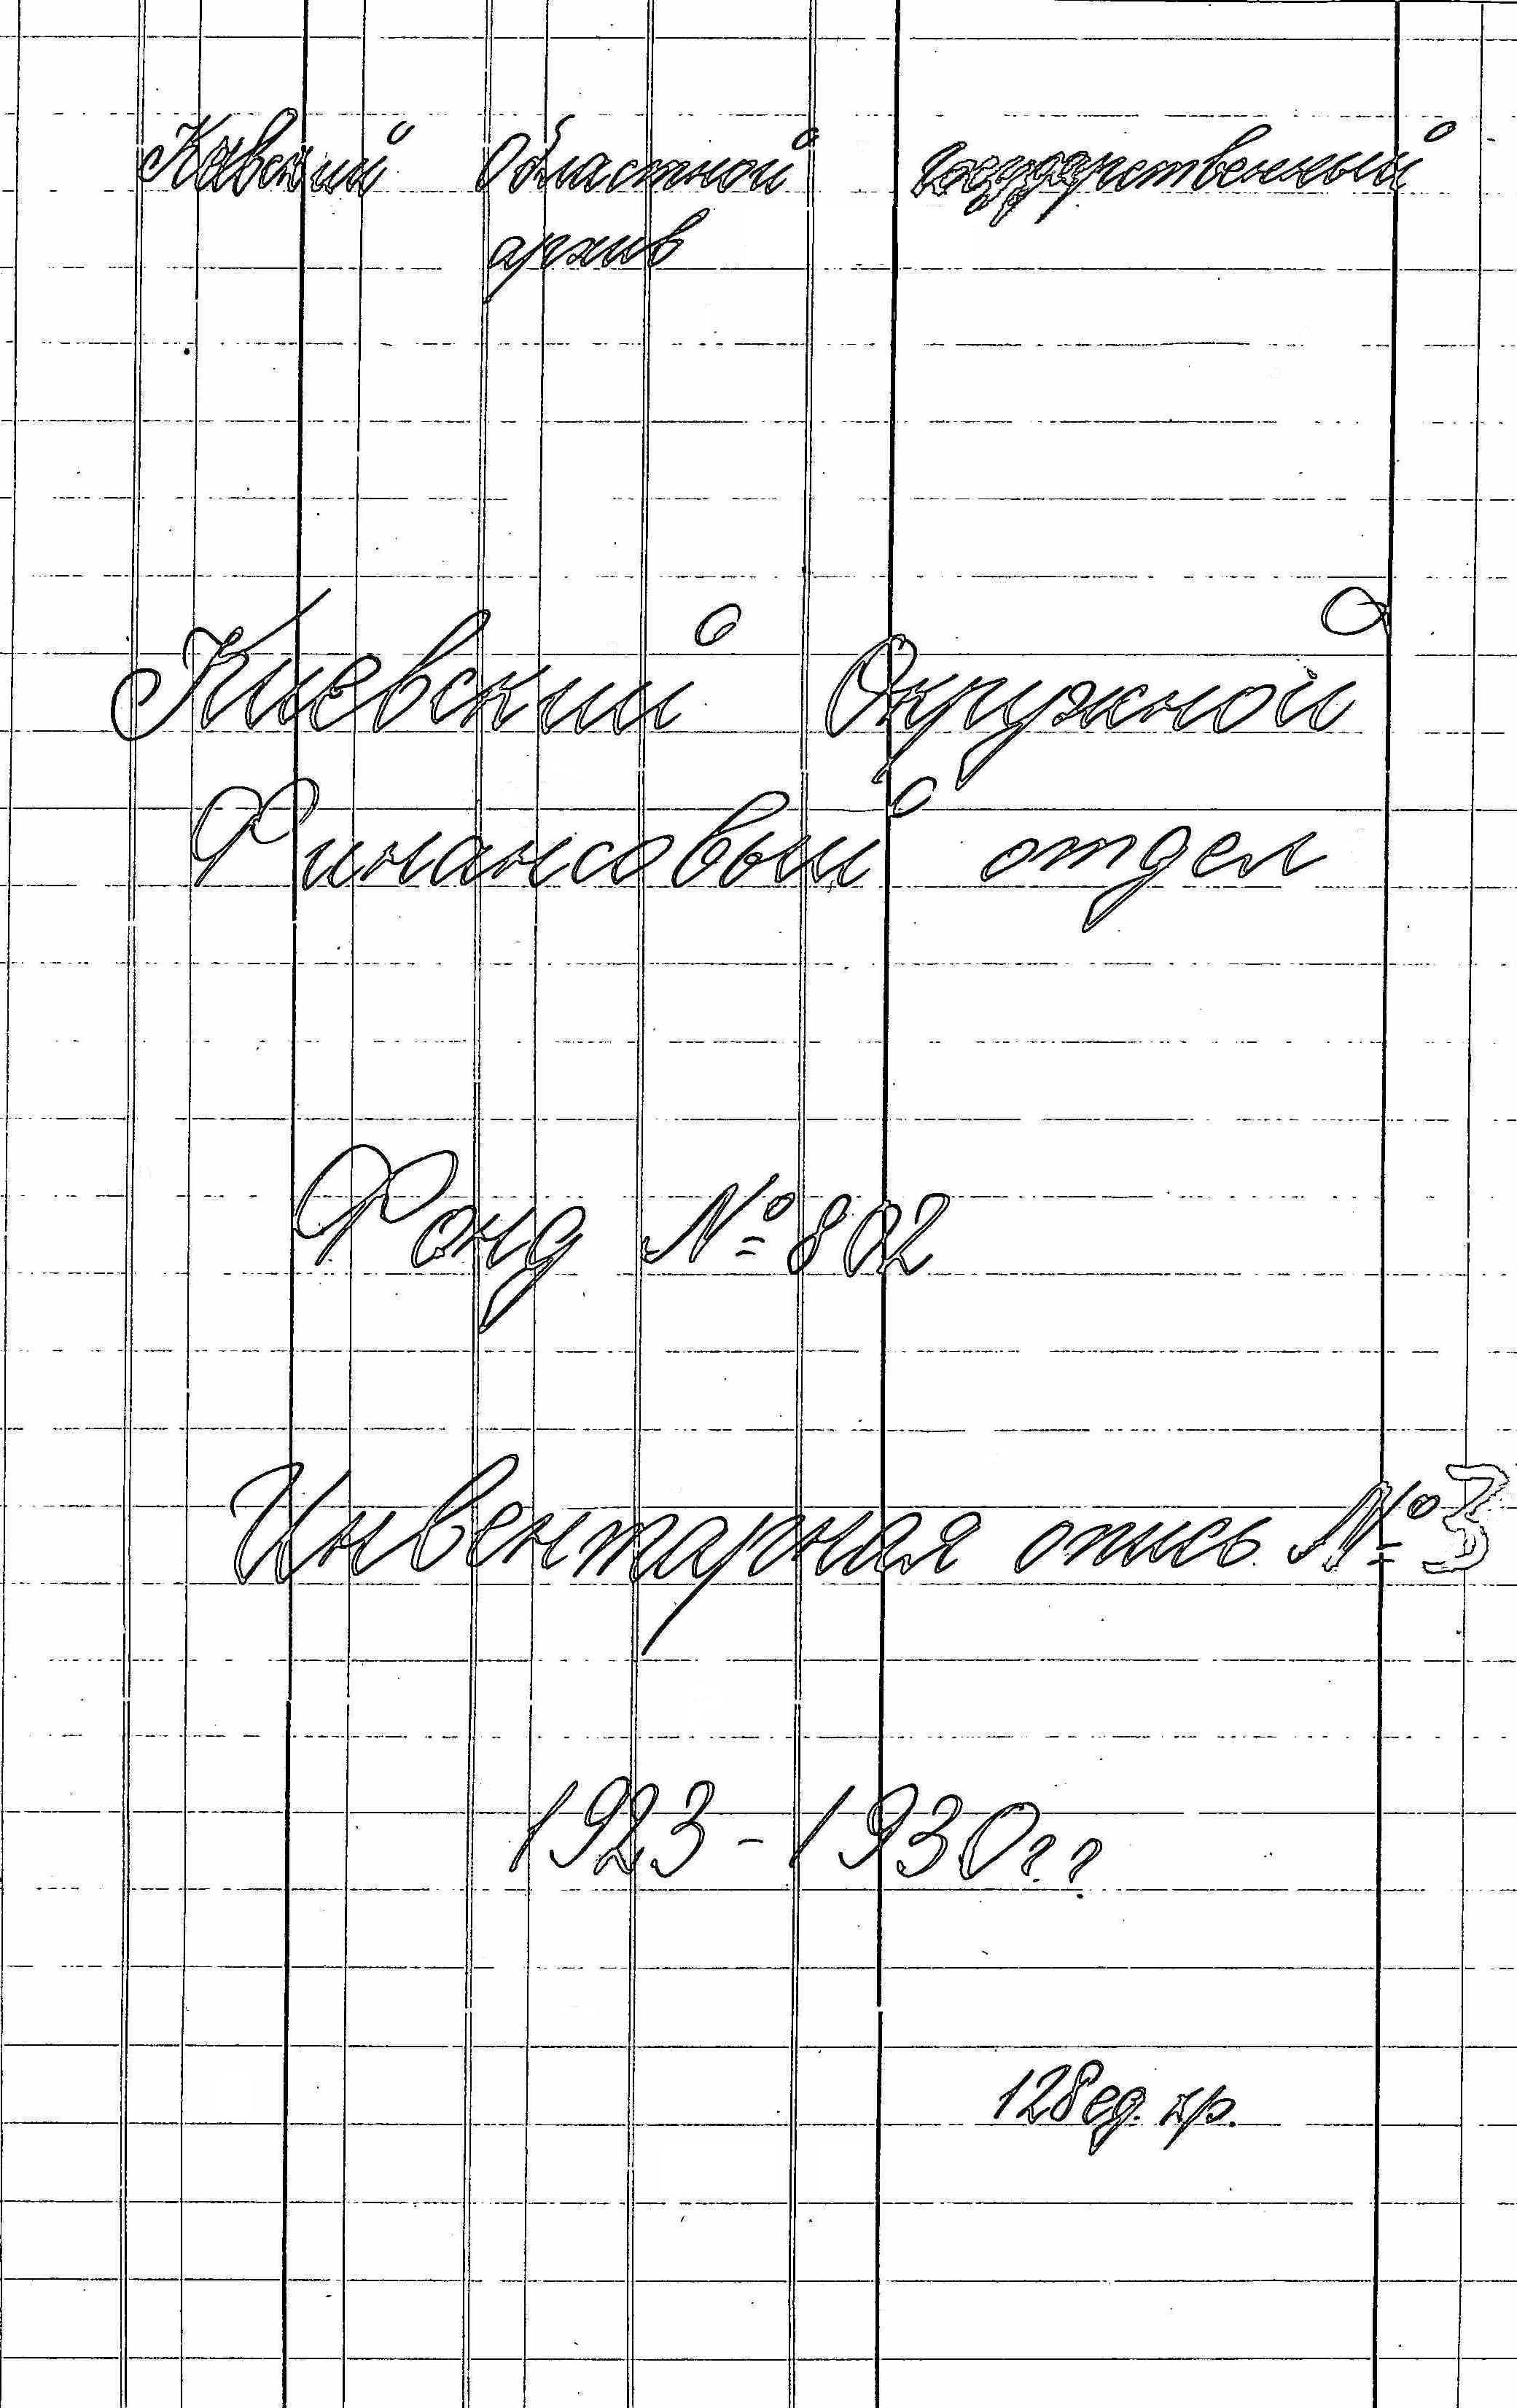 Киевский Областной государственный
архив
Киевский Окружной
Финансовый отдел
Фонд № 802
Инвентарная опись № 3
1923-1930 гг
128 ед. хр.